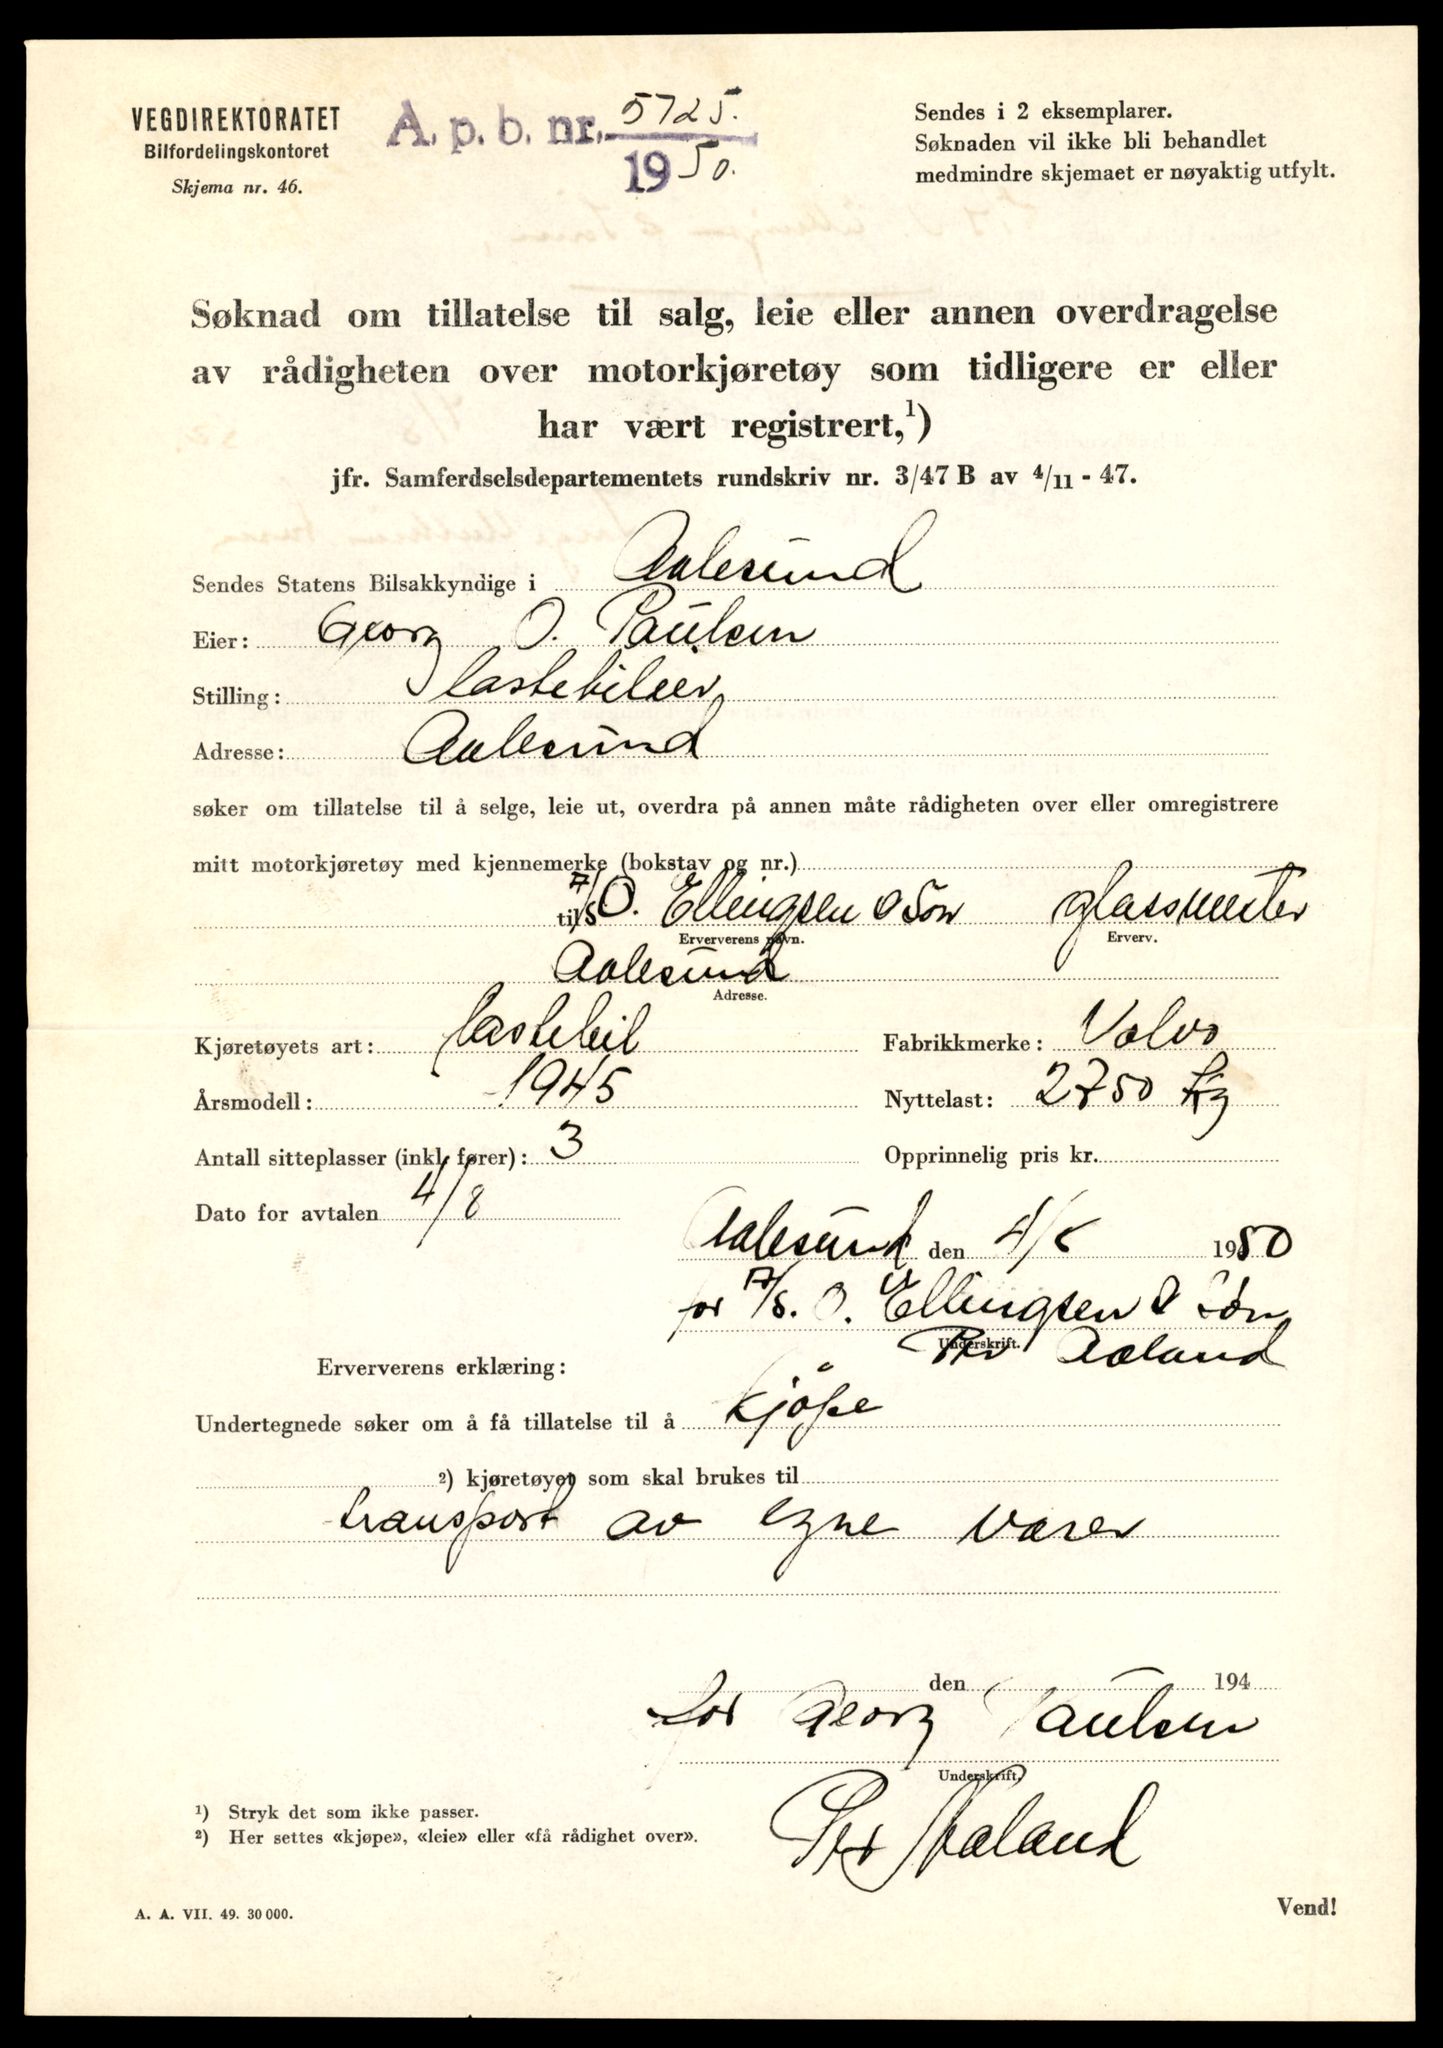 VEGDIREKTORATET
Bilfordelingskontoret
Skjema nr. 46.
A. p. b. nr. 5725.
1950.
Sendes i 2 eksemplarer.
Søknaden vil ikke bli behandlet
medmindre skjemaet er nøyaktig utfylt.
Søknad om tillatelse til salg, leie eller annen overdragelse
av rådigheten over motorkjøretøy som tidligere er eller
har vært registrert,¹)
jfr. Samferdselsdepartementets rundskriv nr. 3/47 B av 4/11 - 47.
Sendes Statens Bilsakkyndige i Aalesund
Eier: Georg O. Paulsen
Stilling: lastebileier
Adresse: Aalesund
søker om tillatelse til å selge, leie ut, overdra på annen måte rådigheten over eller omregistrere
mitt motorkjøretøy med kjennemerke (bokstav og nr.)
til A/S O. Ellingsen & Søn glassmester
Erververens navn. Erverv.
Aalesund
Adresse.
Kjøretøyets art: lastebil Fabrikkmerke: Volvo
Årsmodell: 1945 Nyttelast: 2750 kg
Antall sitteplasser (inkl. fører): 3 Opprinnelig pris kr.
Dato for avtalen 4/8
Aalesund den 4/8 1950
for A/S. O. Ellingsen & Søn
Underskrift.
Per Aaland
Erververens erklæring:
Undertegnede søker om å få tillatelse til å kjöpe
²) kjøretøyet som skal brukes til
transport av egne varer
den 194
for Georg Paulsen
Underskrift.
Per Aaland
¹) Stryk det som ikke passer.
²) Her settes «kjøpe», «leie» eller «få rådighet over».
A. A. VII. 49. 30 000.
Vend!